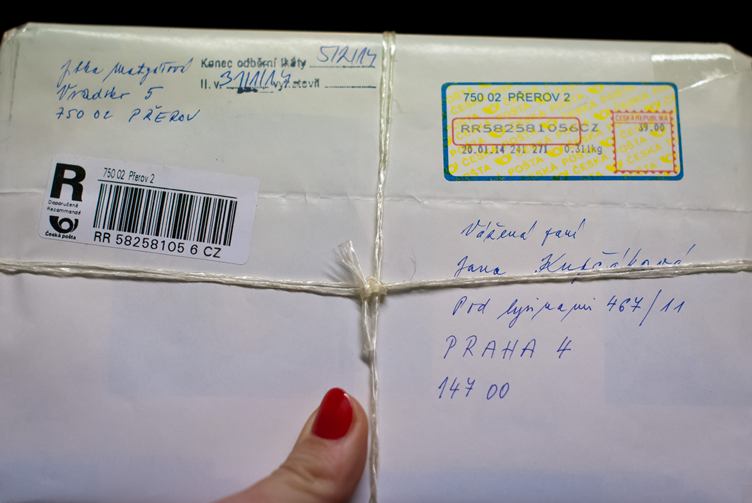 750 02 PŘEROV
Konec odběrní lhůty 5/2/14
II. v. 31/1/14
750 02 PŘEROV 2
RR582581056CZ
20.01.14 241 271 0.311kg
ČESKÁ REPUBLIKA
39.00
R
Doporučeně
Recommandé
Česká pošta
750 02 Přerov 2
RR 58258105 6 CZ
Vážená paní
Jana
Pod lysinami 467/11
PRAHA 4
147 00